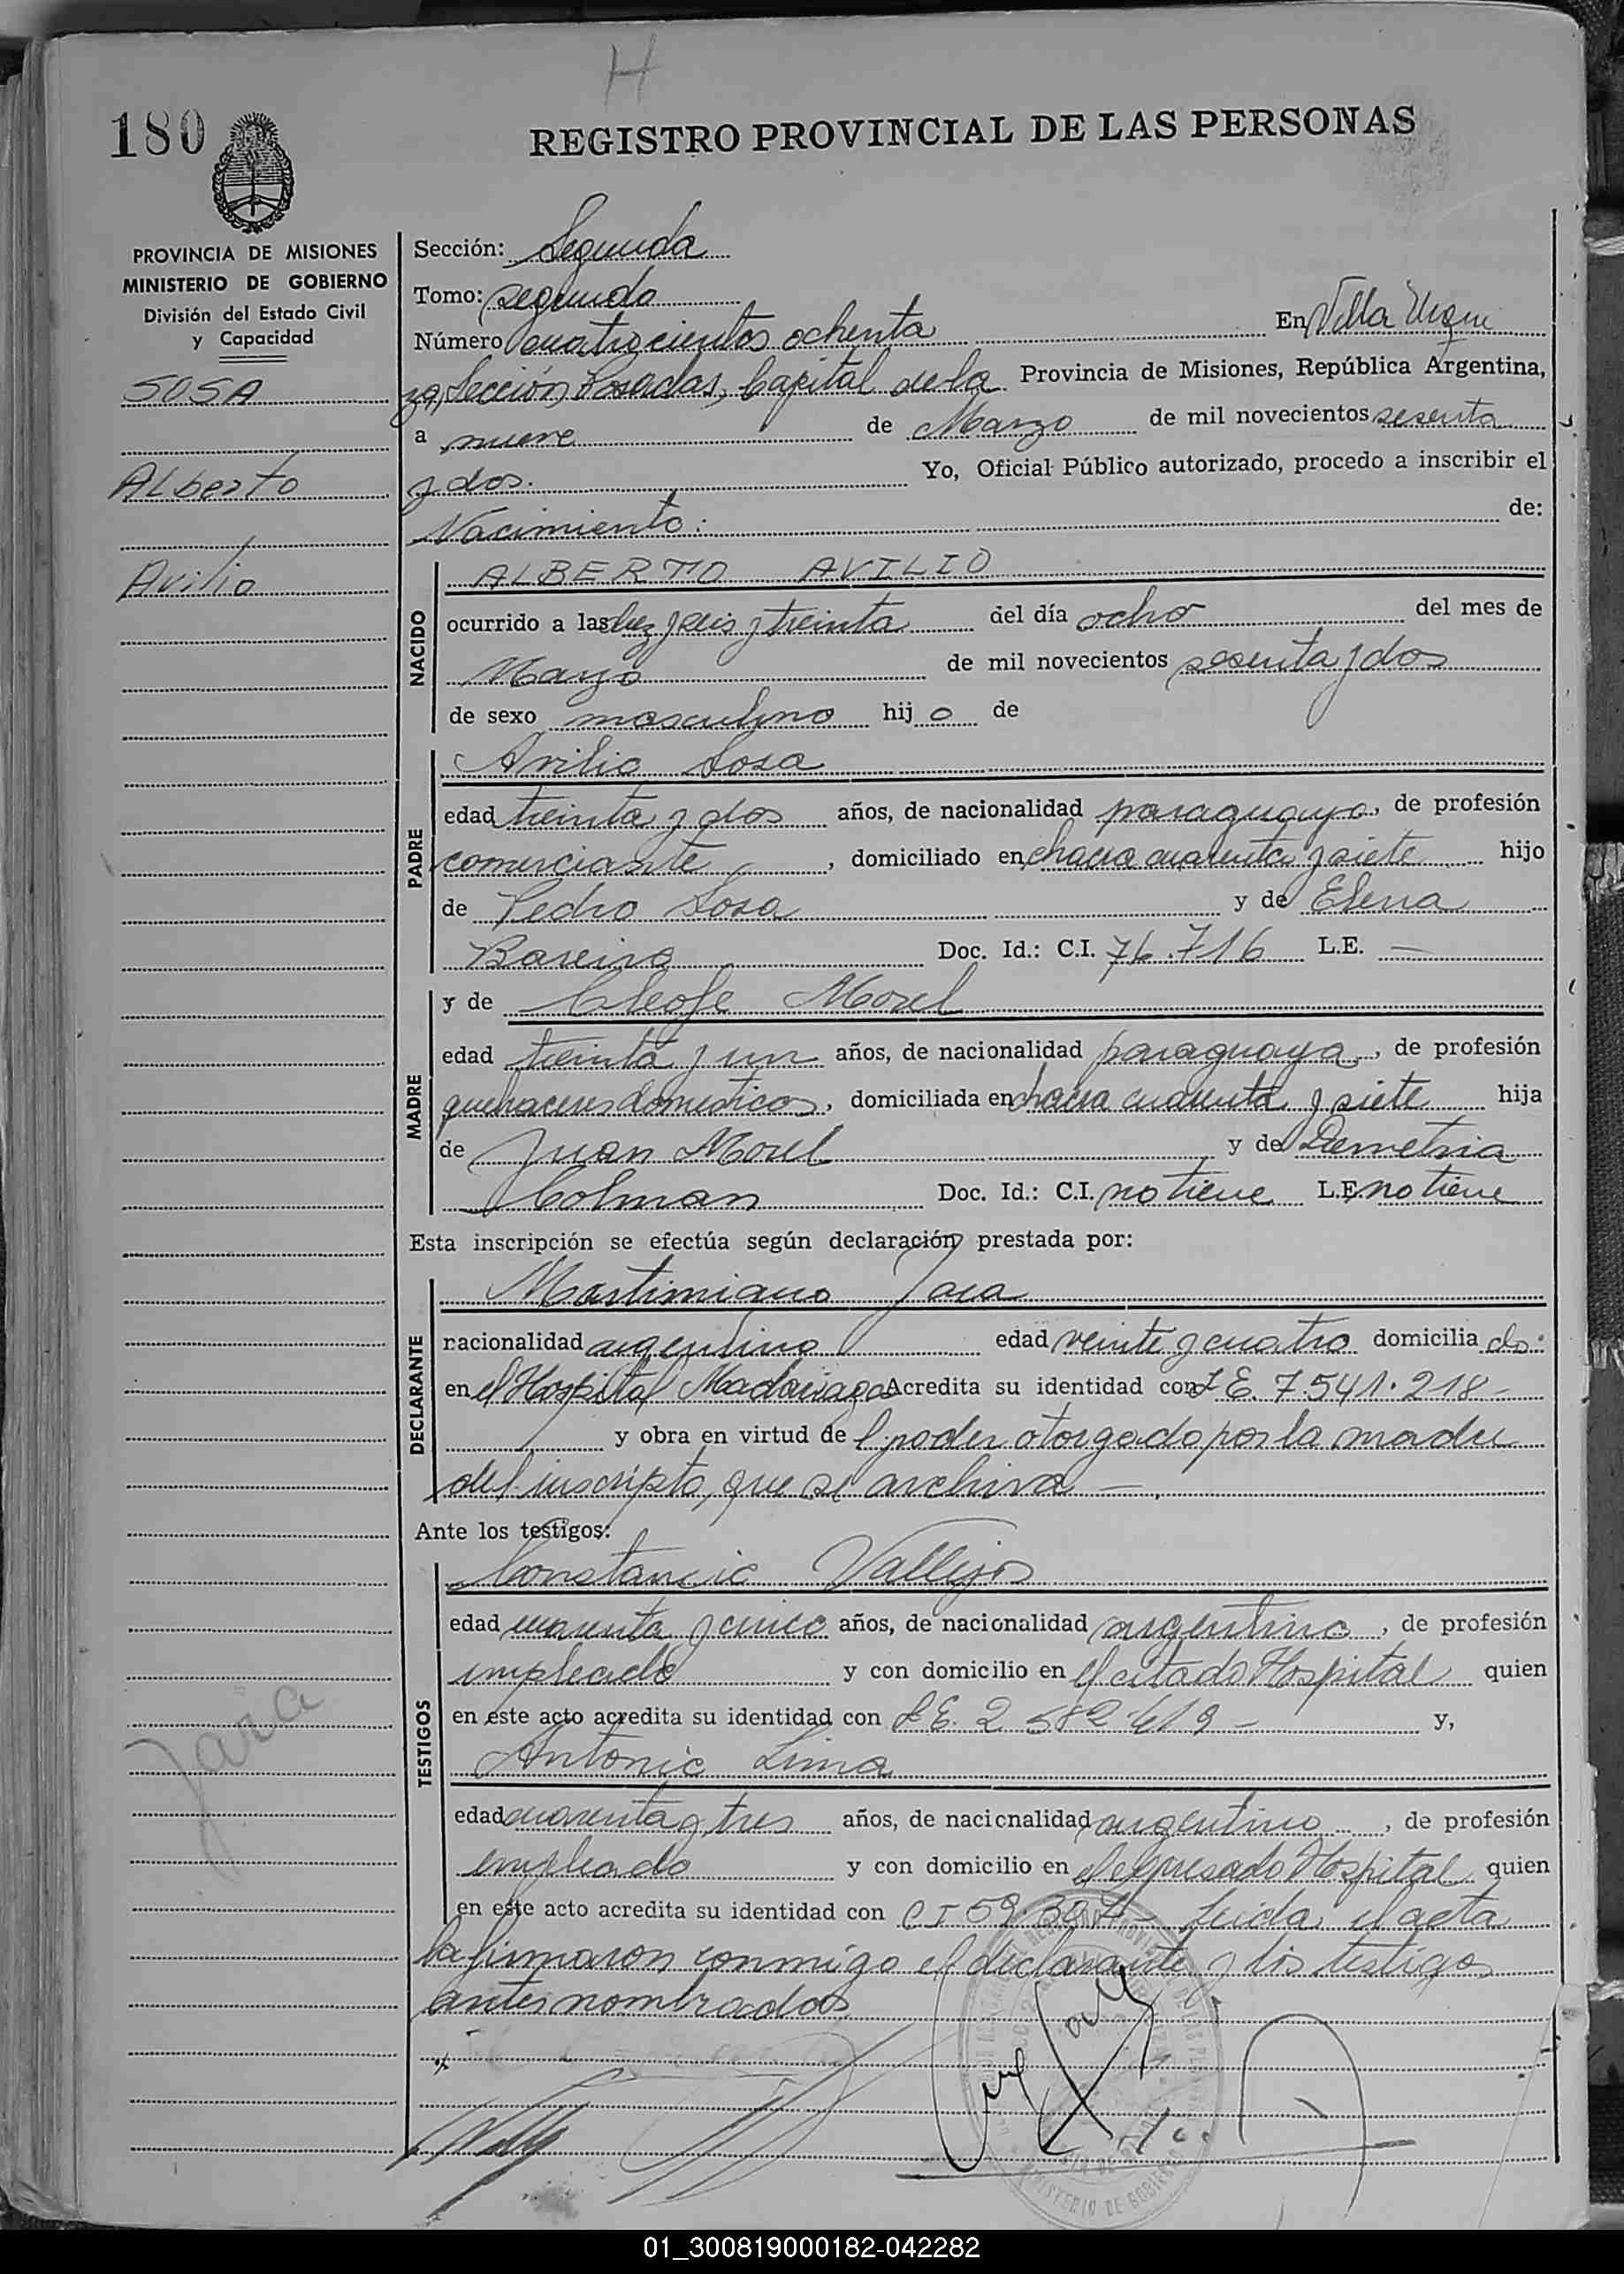 H
180
REGISTRO PROVINCIAL DE LAS PERSONAS
PROVINCIA DE MISIONES
MINISTERIO DE GOBIERNO
División del Estado Civil
y Capacidad
SOSA
Alberto
Avilio
Jara
Sección: Segunda
Tomo: segundo
Número cuatrocientos ochenta En Villa Urqui
za, Sección, Posadas, Capital de la Provincia de Misiones, República Argentina,
a nueve de Marzo de mil novecientos sesenta
y dos. Yo, Oficial Público autorizado, procedo a inscribir el
Nacimiento: de:
NACIDO
ALBERTO AVILIO
ocurrido a las diez y seis y treinta del día ocho del mes de
Marzo de mil novecientos sesenta y dos
de sexo masculino hij o de
PADRE
Avilio Sosa
edad treinta y dos años, de nacionalidad paraguayo, de profesión
comerciante, domiciliado en chacra cuarenta y siete hijo
de Pedro Sosa y de Elena
Bareiro Doc. Id.: C.I. 76.716 L.E. —
MADRE
y de Cleofe Morel
edad treinta y un años, de nacionalidad paraguaya, de profesión
quehaceres domesticos, domiciliada en chacra cuarenta y siete hija
de Juan Morel y de Demetria
Colman Doc. Id.: C.I. no tiene L.E. no tiene
Esta inscripción se efectúa según declaración prestada por:
DECLARANTE
Martimiano Jara
nacionalidad argentino edad veinte y cuatro domicilia do
en el Hospital Madariaga Acredita su identidad con L E. 7.541.218 -
y obra en virtud de l poder otorgado por la madre
del inscripto, que se archiva —.
Ante los testigos:
TESTIGOS
Constancio Vallejos
edad cuarenta y cinco años, de nacionalidad argentino, de profesión
empleado y con domicilio en el citado Hospital quien
en este acto acredita su identidad con L E. 2 582 419 - y,
Antonio Lima
edad cuarenta y tres años, de nacionalidad argentino, de profesión
empleado y con domicilio en el expresado Hospital quien
en este acto acredita su identidad con C I 59.304 - Leida el acta
la firmaron conmigo el declarante y los testigos
antes nombrados
MINISTERIO DE GOBIERNO
01_300819000182-042282